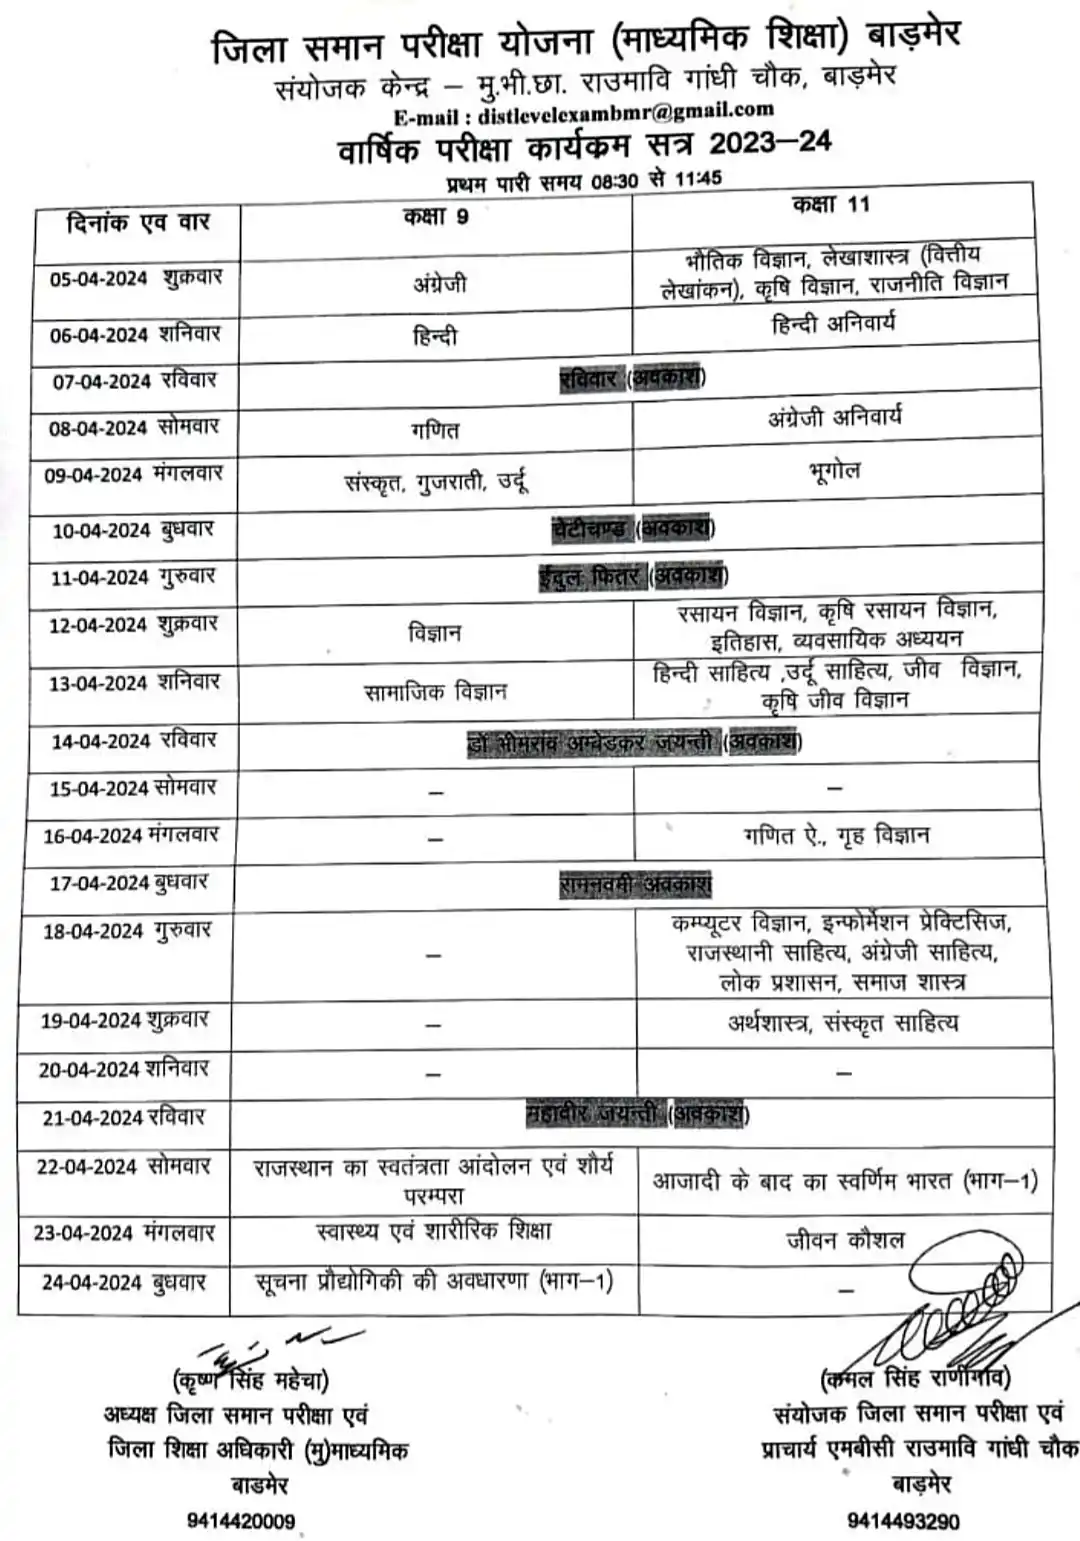 जिला समान परीक्षा योजना (माध्यमिक शिक्षा) बाड़मेर
संयोजक केन्द्र – मु.भी.छा. राउमावि गांधी चौक, बाड़मेर
E-mail : distlevelexambmr@gmail.com
वार्षिक परीक्षा कार्यकम सत्र 2023–24
प्रथम पारी समय 08:30 से 11:45
दिनांक एव वार कक्षा 9 कक्षा 11
05-04-2024 शुक्रवार अंग्रेजी भौतिक विज्ञान, लेखाशास्त्र (वित्तीय
लेखांकन), कृषि विज्ञान, राजनीति विज्ञान
06-04-2024 शनिवार हिन्दी हिन्दी अनिवार्य
07-04-2024 रविवार रविवार (अवकाश)
08-04-2024 सोमवार गणित अंग्रेजी अनिवार्य
09-04-2024 मंगलवार संस्कृत, गुजराती, उर्दू भूगोल
10-04-2024 बुधवार चेटीचण्ड (अवकाश)
11-04-2024 गुरुवार ईदुल फितर (अवकाश)
12-04-2024 शुक्रवार विज्ञान रसायन विज्ञान, कृषि रसायन विज्ञान,
इतिहास, व्यवसायिक अध्ययन
13-04-2024 शनिवार सामाजिक विज्ञान हिन्दी साहित्य ,उर्दू साहित्य, जीव विज्ञान,
कृषि जीव विज्ञान
14-04-2024 रविवार डॉ भीमराव अम्बेडकर जयन्ती (अवकाश)
15-04-2024 सोमवार – –
16-04-2024 मंगलवार – गणित ऐ., गृह विज्ञान
17-04-2024 बुधवार रामनवमी अवकाश
18-04-2024 गुरुवार – कम्प्यूटर विज्ञान, इन्फोर्मेशन प्रेक्टिसिज,
राजस्थानी साहित्य, अंग्रेजी साहित्य,
लोक प्रशासन, समाज शास्त्र
19-04-2024 शुक्रवार – अर्थशास्त्र, संस्कृत साहित्य
20-04-2024 शनिवार – –
21-04-2024 रविवार महावीर जयन्ती (अवकाश)
22-04-2024 सोमवार राजस्थान का स्वतंत्रता आंदोलन एवं शौर्य
परम्परा आजादी के बाद का स्वर्णिम भारत (भाग–1)
23-04-2024 मंगलवार स्वास्थ्य एवं शारीरिक शिक्षा जीवन कौशल
24-04-2024 बुधवार सूचना प्रौद्योगिकी की अवधारणा (भाग–1) –
(कृष्ण सिंह महेचा) (कमल सिंह राणीगांव)
अध्यक्ष जिला समान परीक्षा एवं संयोजक जिला समान परीक्षा एवं
जिला शिक्षा अधिकारी (मु)माध्यमिक प्राचार्य एमबीसी राउमावि गांधी चौक
बाडमेर बाड़मेर
9414420009 9414493290